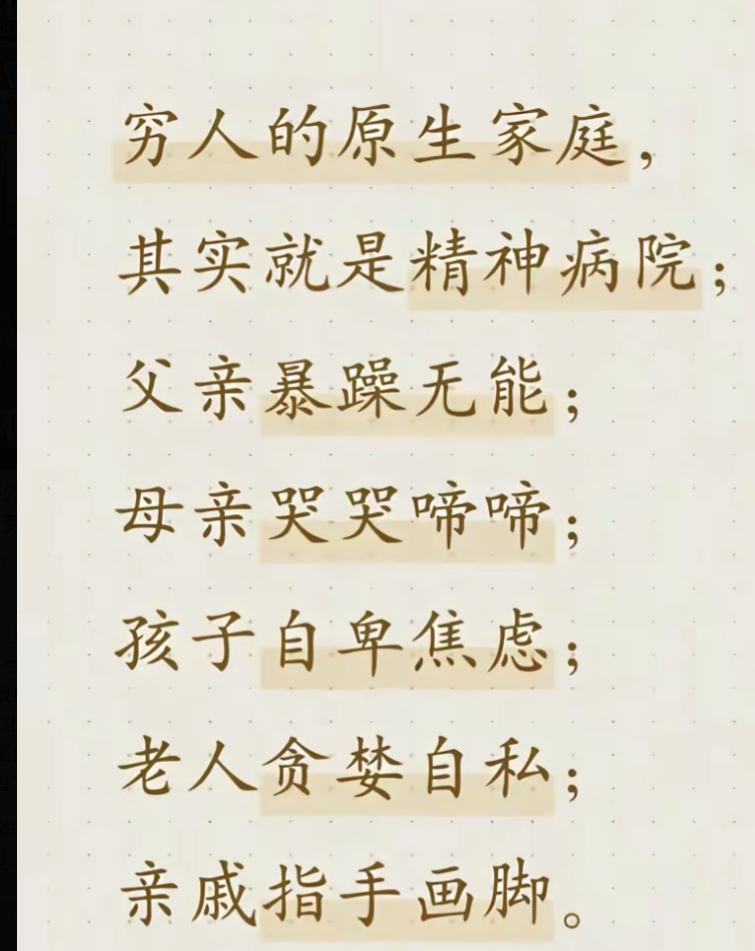 穷人的原生家庭，
其实就是精神病院；
父亲暴躁无能；
母亲哭哭啼啼；
孩子自卑焦虑；
老人贪婪自私；
亲戚指手画脚。